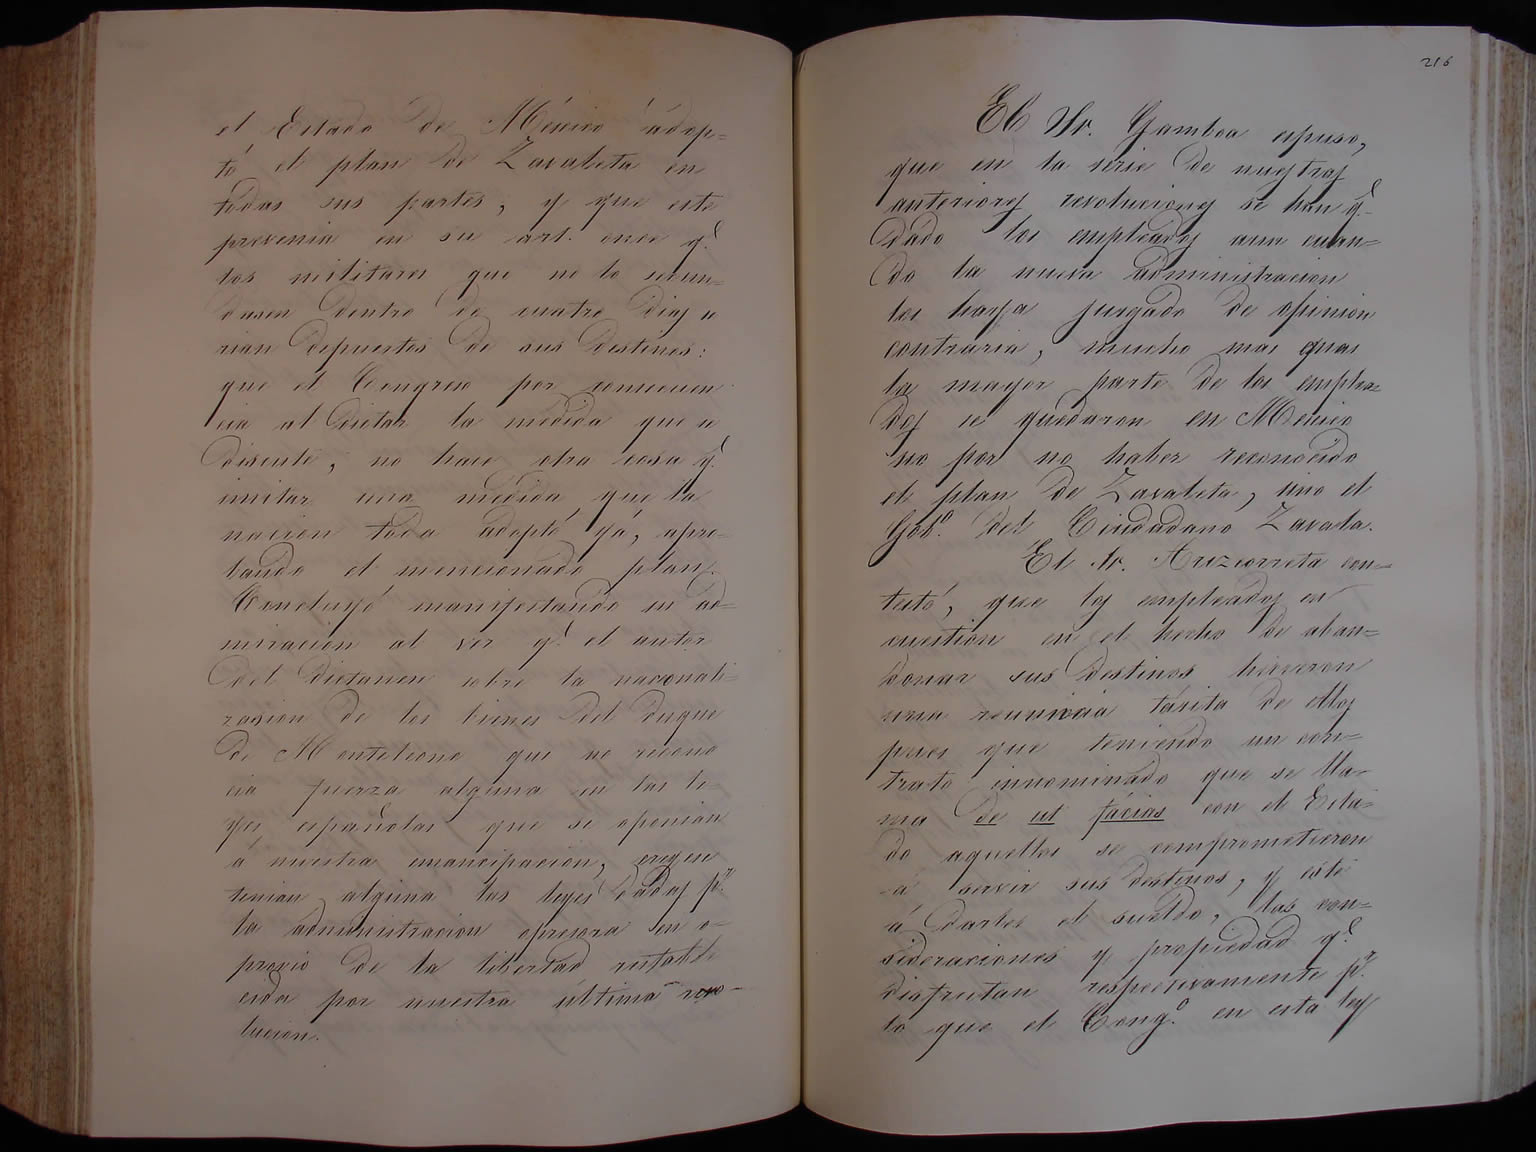 el Estado de México adop=
tó el plan de Zavaleta en
todas sus partes, y que este
prevenia en su art. once q.e
los militares que no lo secun=
dasen dentro de cuatro dias se
rian depuestos de sus destinos:
que el Congreso por consecuen
cia al dictar la medida que se
discute, no hace otra cosa q.e
imitar una medida que la
nacion toda adoptó yá, apro=
bando el mencionado plan.
Concluyó manifestando su ad=
miración al ver q.e el autor
del dictamen sobre la nacionali=
zacion de los bienes del duque
de Monteleone que no recono
cia fuerza alguna en las le
yes españolas que se oponian
á nuestra emancipación, crея
tenian alguna las leyes dadas p.r
la administracion opresora en o=
provio de la libertad restable
cida por nuestra última revo-
lucion.
216
El Sr. Gamboa espuso,
que en la serie de nuestras
anteriores revoluciones se han q.e
dádo los empleados aun cuan=
do la nueva administracion
los haya juzgado de opinion
contraria, mucho mas quas
la mayor parte de los emplea=
dos se quedaron en Mexico
no por no haber reconocido
el plan de Zavaleta, sino el
Gob.o del Ciudadano Zavala.
El Sr. Arizcorreta con=
testó, que los empleados en
cuestion en el hecho de aban=
donar sus destinos hicieron
una renuncia tácita de ellos
pues que teniendo un con=
trato innominado que se lla=
ma do ut fácias con el Esta=
do aquellos se comprometieron
á servir sus destinos, y éste
á darles el sueldo, las con=
sideraciones y propiedad q.e
disfrutan respectivamente p.r
lo que el Cong.o en esta ley